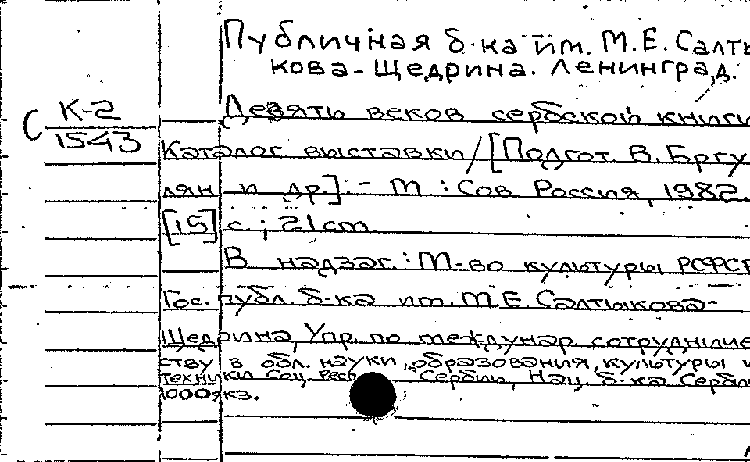 Публичная б-ка им. М.Е. Салты
кова-Щедрина. Ленинград.
С К-2
1543
Девять веков сербской книги
Каталог выставки / [Подгот. В. Бргу
лян и др.]. - М : Сов Россия, 1982
[15] с ; 21 cm
В надзаг.: М-во культуры РСФСР
Гос. публ. б-ка им. М Е Салтыкова-
Щедрина, Упр. по междунар сотрудниче
ству в обл. науки, образования, культуры и
техники Соц. Респ Сербии, Нац. б-ка Сербии
1000 экз.